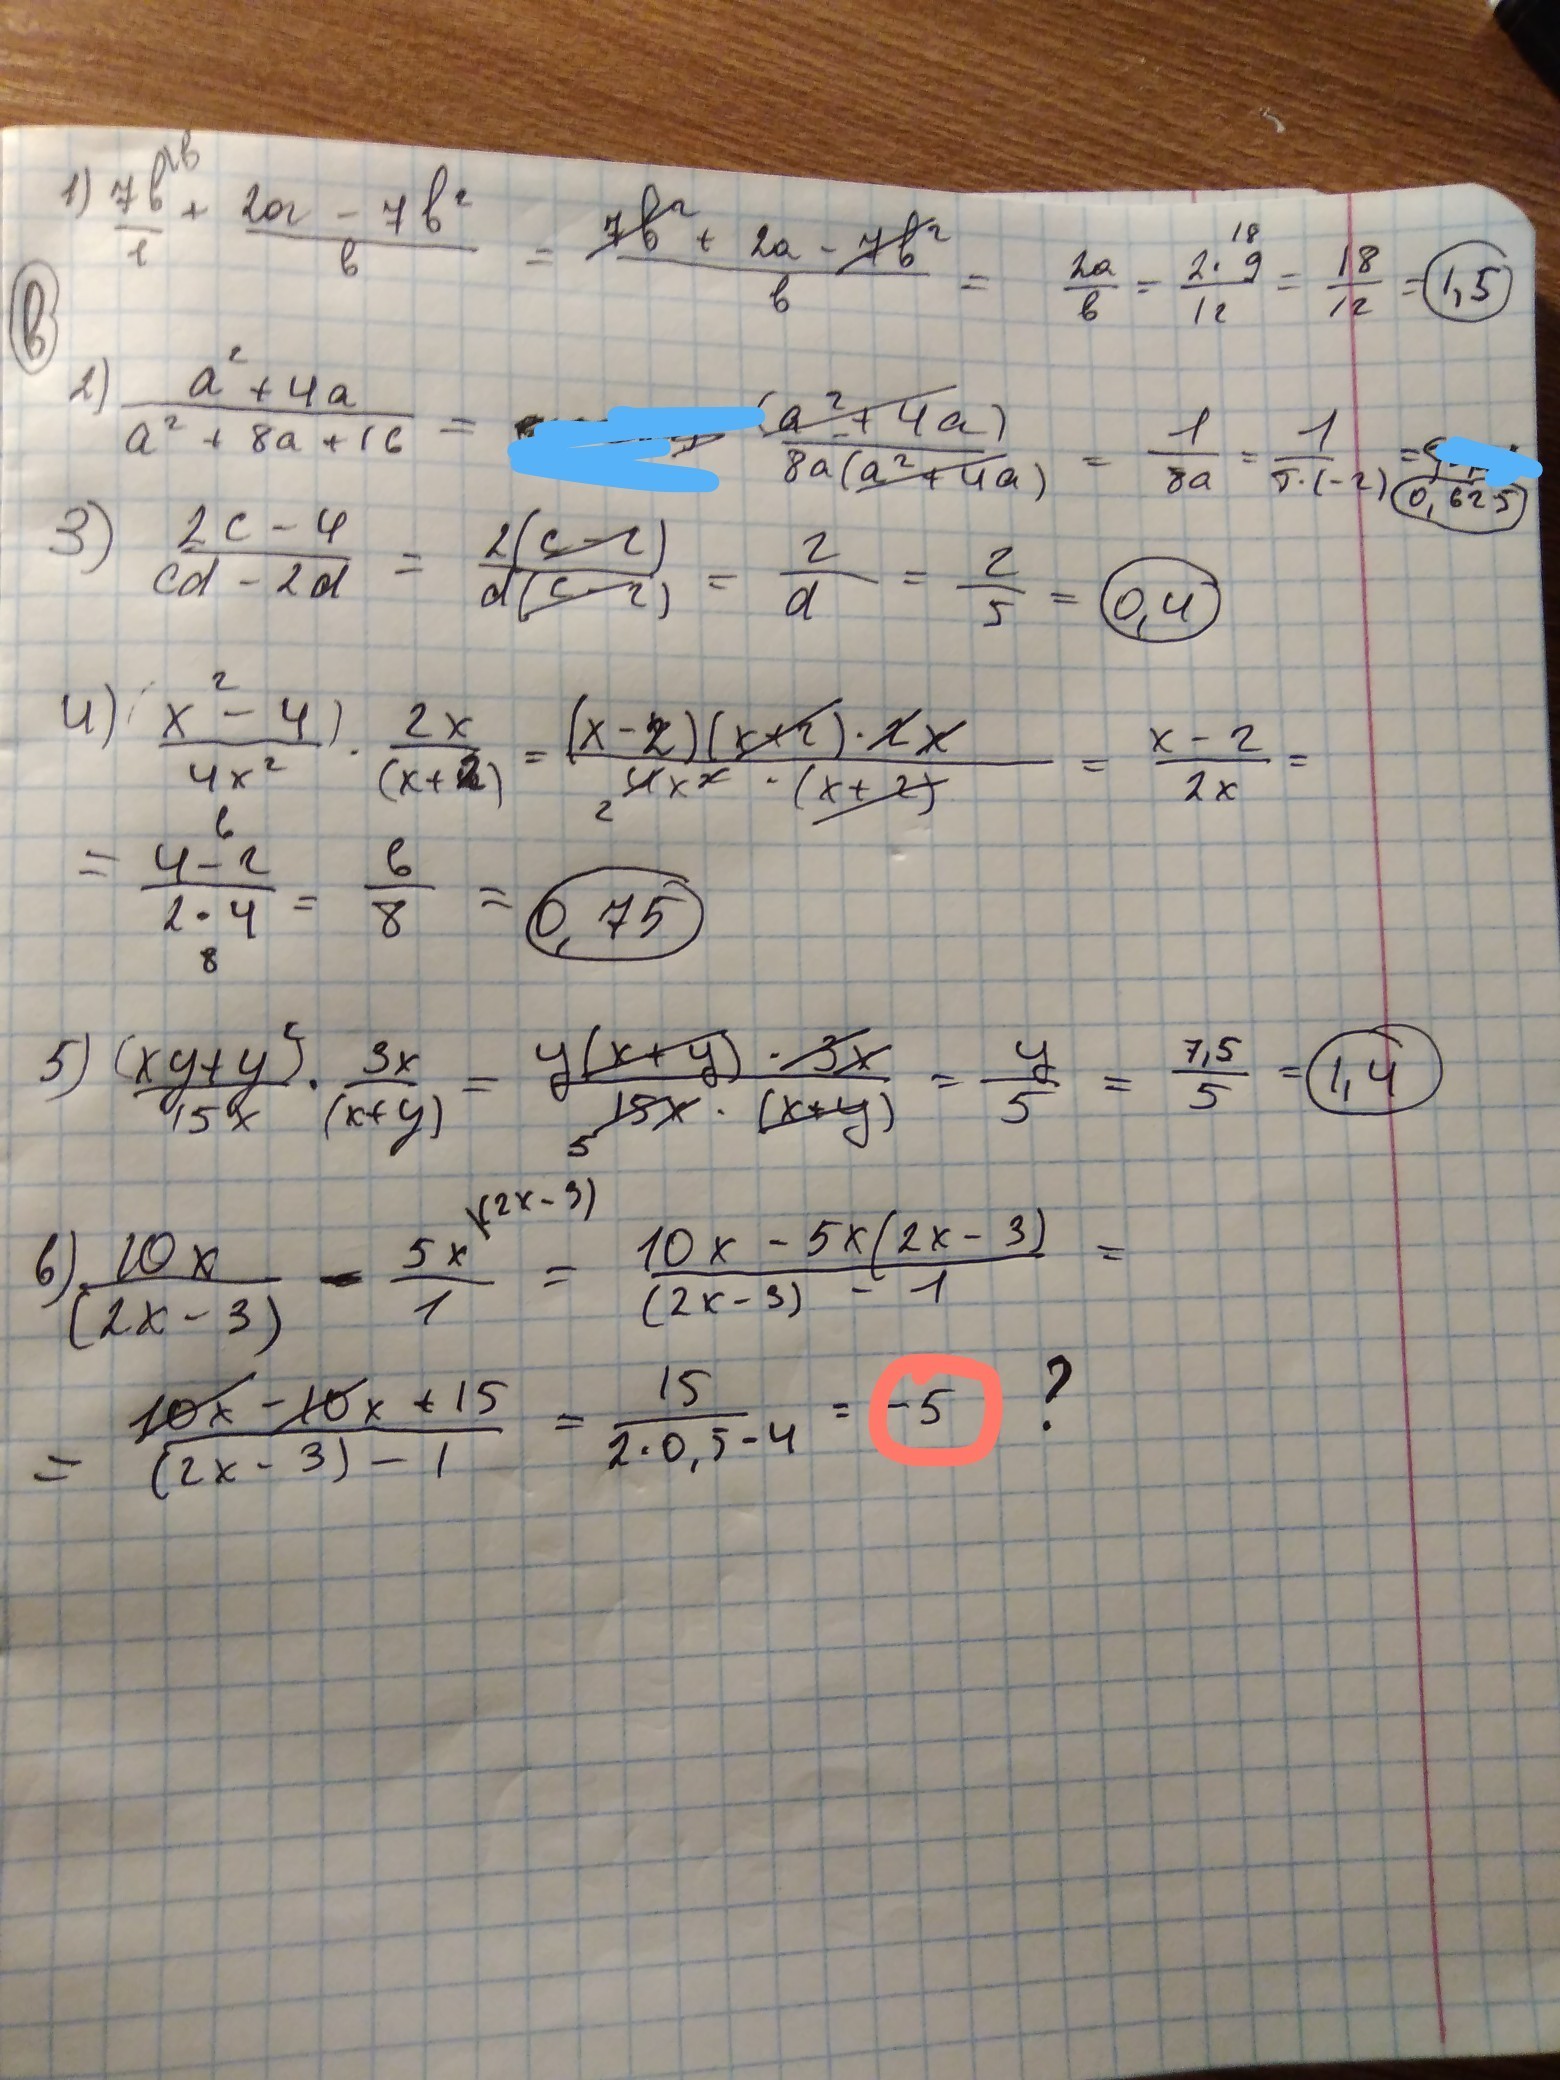 1) 7b^(2b)/1 + (2a - 7b²)/b = (7b² + 2a - 7b²)/b = 2a/b = (2·9)/12 = 18/12 = 1,5
18
в
2) (a² + 4a)/(a² + 8a + 16) = (a² + 4a)/(8a(a² + 4a)) = 1/(8a) = 1/(8·(-2)) = 0,625
3) (2c - 4)/(cd - 2d) = 2(c - 2)/(d(c - 2)) = 2/d = 2/5 = 0,4
4) (x² - 4)/(4x²) · 2x/(x+2) = ((x-2)(x+2)·2x)/(4x² · (x+2)) = (x - 2)/(2x) =
2
= (4 - 2)/(2·4) = 6/8 = 0,75
6
8
5) (xy+y²)/(15x) · 3x/(x+y) = (y(x+y) · 3x)/(15x · (x+y)) = y/5 = 7,5/5 = 1,4
5
6) 10x/(2x - 3) - 5x/1 \(2x - 3) = (10x - 5x(2x - 3))/((2x - 3) - 1) =
= (10x - 10x + 15)/((2x - 3) - 1) = 15/(2·0,5 - 4) = -5 ?